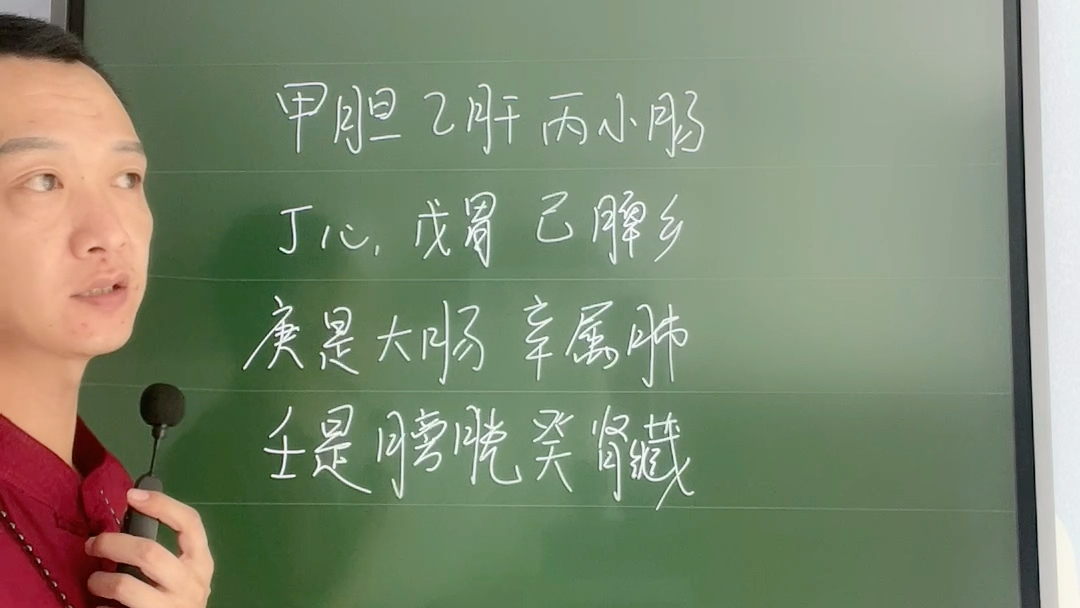 甲胆乙肝丙小肠
丁心,戊胃己脾乡
庚是大肠辛属肺
壬是膀胱癸肾藏